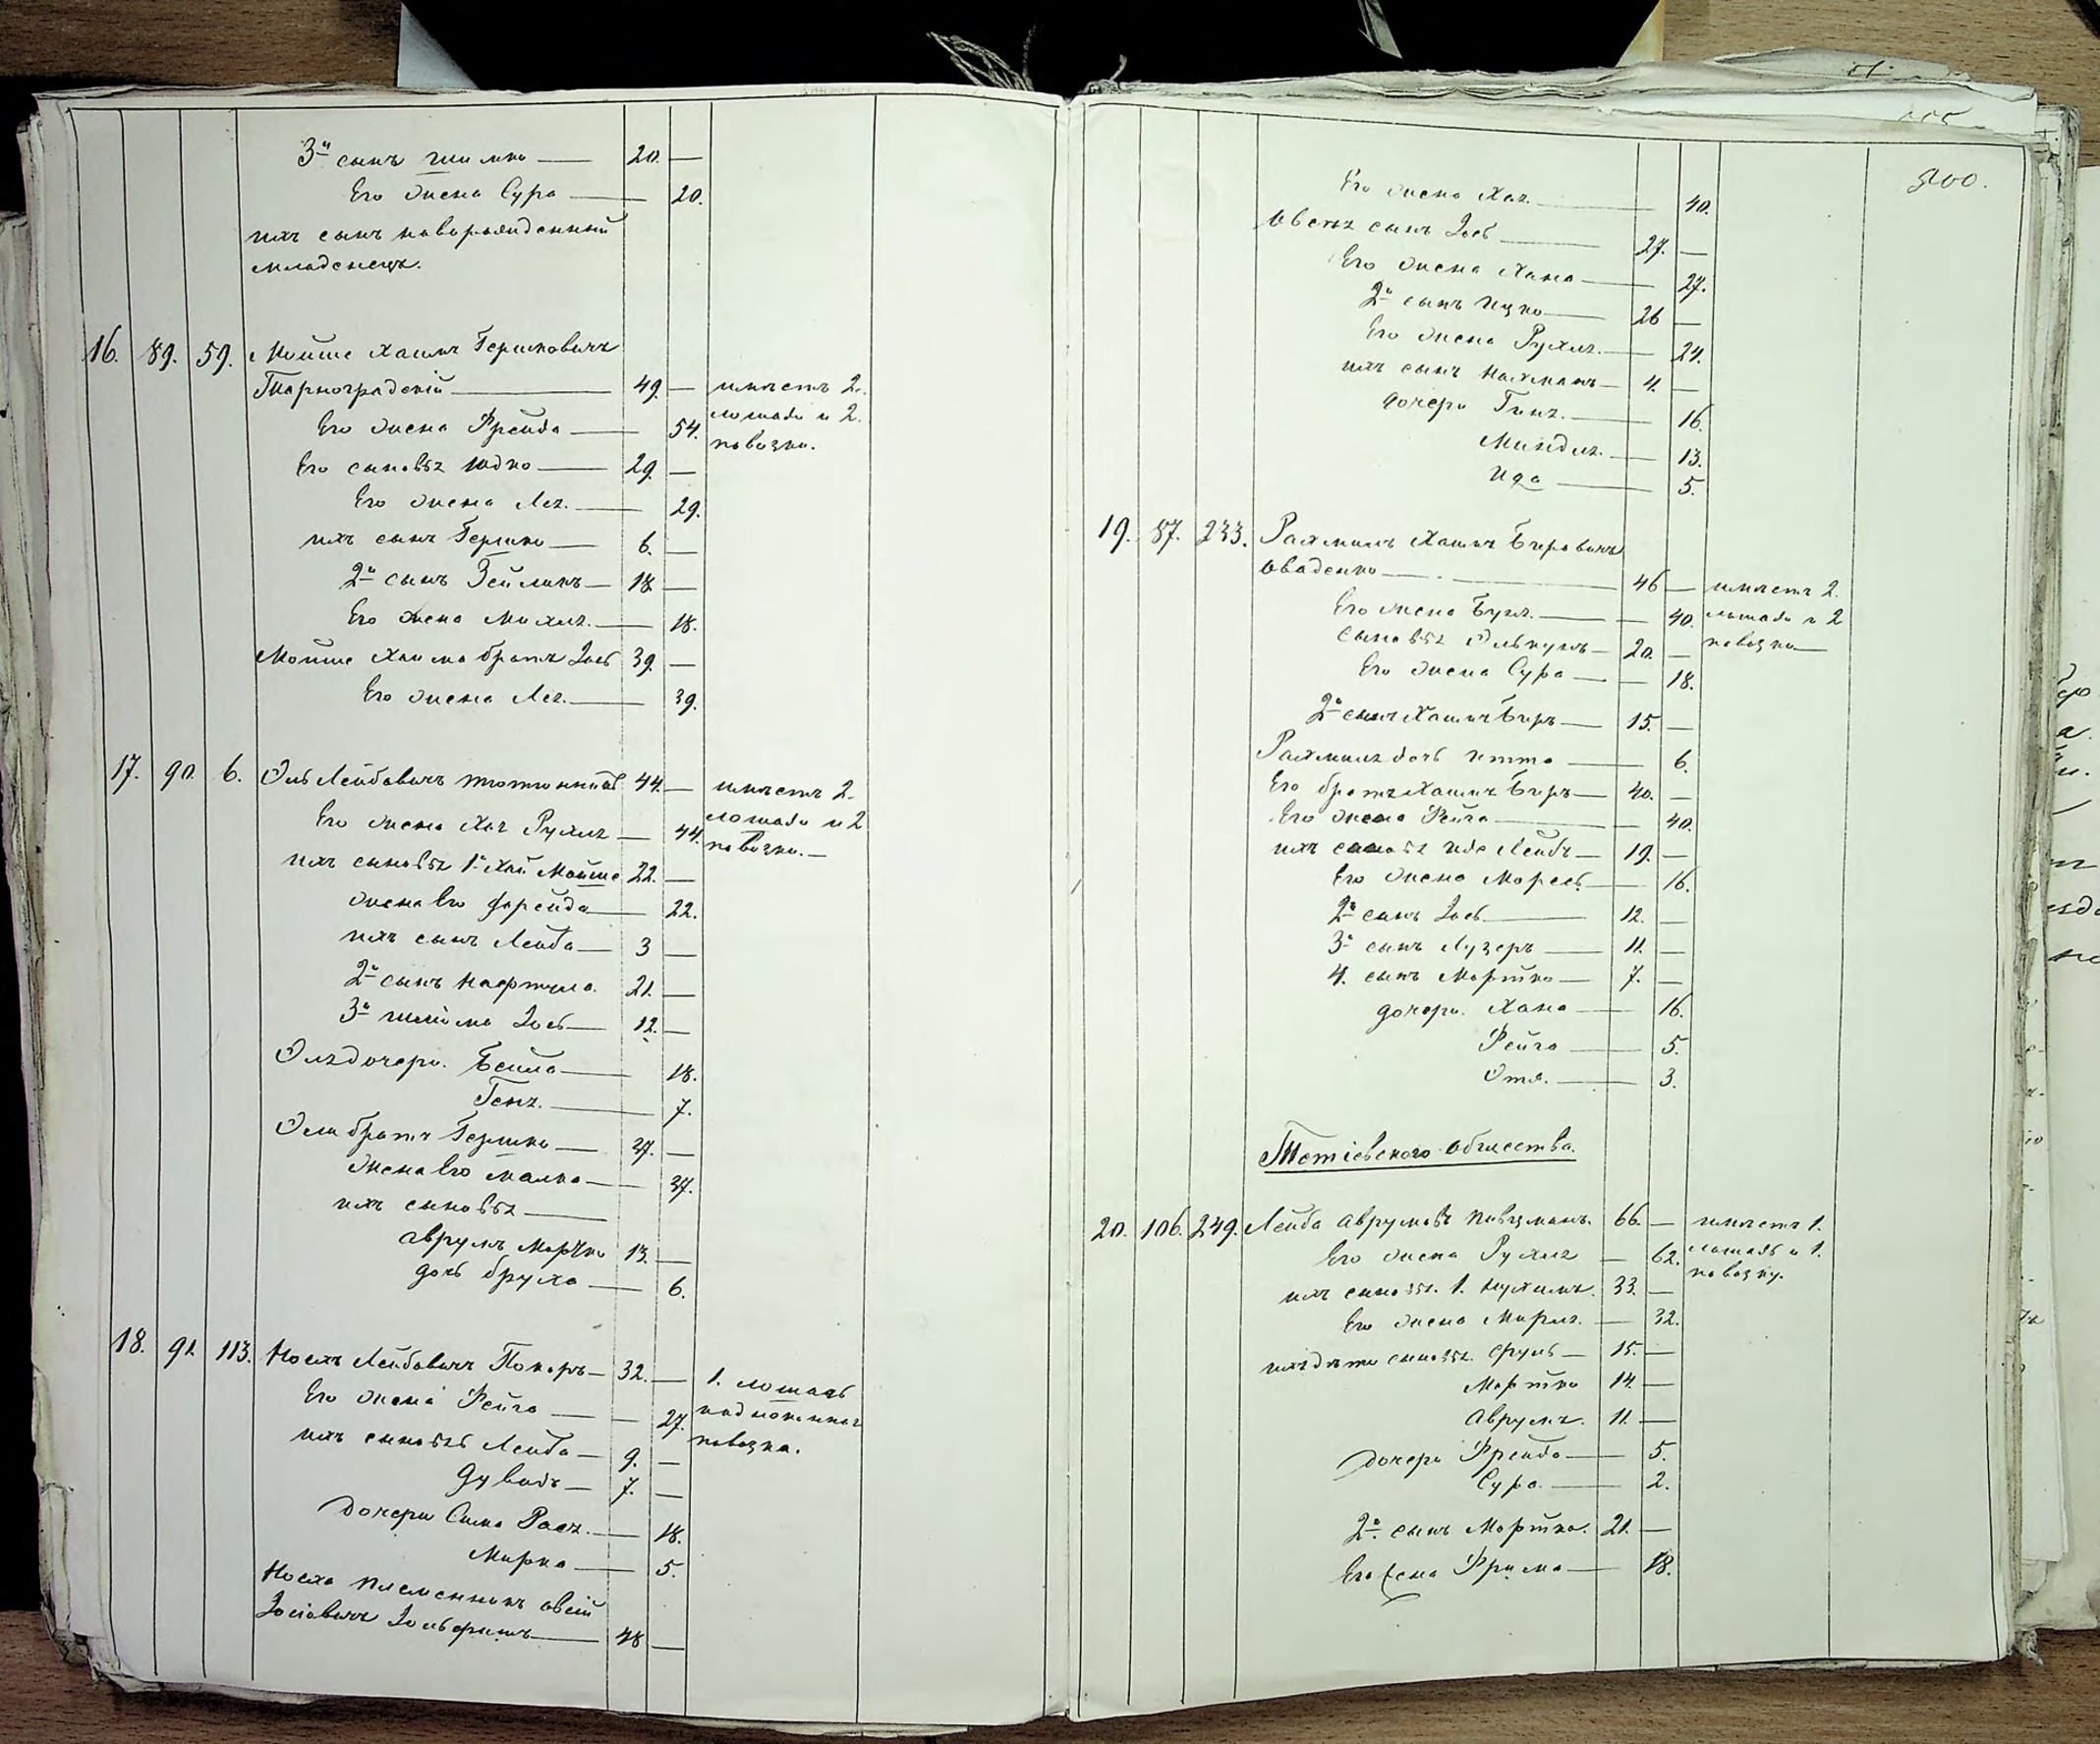 3й сынъ Шимко — 20. —
Его жена Сура — 20.
ихъ сынъ новорожденный
младенецъ.
16. 89. 59. Мойше Хаимъ Гершковичъ
Тарноградскій — 49. — имѣетъ 2.
Его жена Фрейда — 54. лошади и 2.
повозки.
Его сыновья Юдко — 29. —
Его жена Лея. — 29.
ихъ сынъ Гершко — 6. —
2й сынъ Зейликъ — 18 —
Его жена Михля. — 18.
Мойше Хаима братъ Іось 39. —
Его жена Лея. — 39.
17. 90. 6. Эль Лейбовичъ 44. — имѣетъ 2.
Его жена Хая Рухля — 44. лошади и 2
повозки. —
ихъ сыновья 1й Хай Мойше 22. —
жена Его Фрейда — 22.
ихъ сынъ Лейба — 3 —
2й сынъ Нафтула. 21. —
3й Шлійома Іось — 12. —
Эля дочери. Бейла — 18.
Геня. — 7.
Эля братъ Гершко — 37. —
Жена Его Малка — 37.
ихъ сыновья —
Аврумъ Мортко 13. —
дочь Бруха — 6.
18. 91. 113. Носихъ Лейбовичъ Покаръ — 32. — 1. лошадь
Его жена Фейга — — 27. надножиная
повозка.
ихъ сыновья Лейба — 9. —
Дувидъ — 7. —
дочери Сима Рася. — 18.
Мирка — 5.
Носиха племенникъ Овсій
Іосіовичъ Зильберштъ — 48 —
500.
Его жена Хая. — 40.
Овсія сынъ Іось — 27. —
Его жена Хана — 27.
2й сынъ Ицко — 26 —
Его жена Рухля. — 24.
ихъ сынъ Нахманъ — 4. —
дочери Гиня. — 16.
Миндля. — 13.
Ида — 5.
19. 87. 233. Рахмиль Хаимъ Беровичъ
Оваденко — 46 — имѣетъ 2.
Его жена Бузя. — — 40. лошади и 2
сыновья Элькунъ — 20. — повозки —
Его жена Сура — — 18.
2й сынъ Хаимъ Беръ — 15. —
Рахмиля дочь Итта — 6.
Его братъ Хаимъ Беръ — 40. —
Его жена Фейга — — 40.
ихъ сыновья Иде Лейбъ — 19. —
Его жена Мареся. — 16.
2й сынъ Іось — 12. —
3й сынъ Лузеръ — 11. —
4. сынъ Мортко — 7. —
дочери. Хана — 16.
Фейга — 5.
Этя. — 3.
Тетіевского Общества.
20. 106. 249. Лейба Аврумовъ Пивцманъ. 66. — имѣетъ 1.
Его жена Рухля — 62. лошадь и 1.
повозку.
ихъ сыновья. 1. Нухимъ. 33. —
Его жена Мирля. — 32.
ихъ дѣти сыновья. Сруль — 15. —
Мортко 14. —
Аврумъ. 11. —
дочери Фрейда — 5.
Сура. — 2.
2й. сынъ Мортко. 21. —
Его жена Фрима — 18.